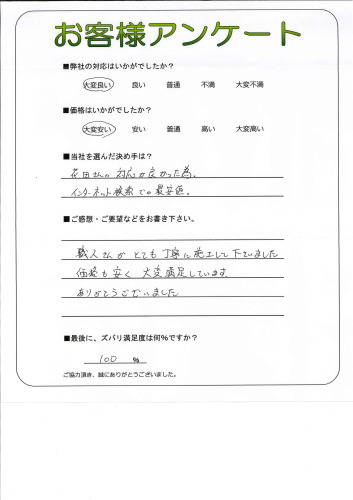 お客様アンケート
■弊社の対応はいかがでしたか?
大変良い 良い 普通 不満 大変不満
■価格はいかがでしたか?
大変安い 安い 普通 高い 大変高い
■当社を選んだ決め手は?
花田さんの対応が良かった為。
インターネット検索での最安値。
■ご感想・ご要望などをお書き下さい。
職人さんがとても丁寧に施工して下さいました
価格も安く大変満足しています。
ありがとうございました
■最後に、ズバリ満足度は何%ですか?
100 %
ご協力頂き、誠にありがとうございました。